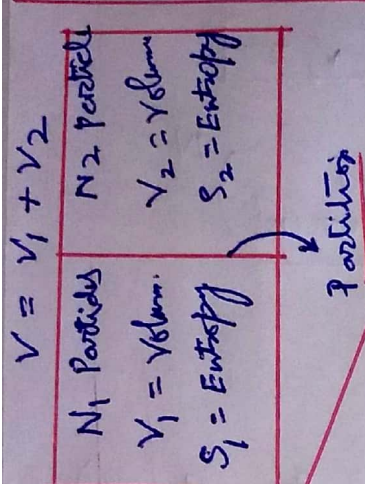 V = V1 + V2
N1 Particles
V1 = Volum.
S1 = Entropy
N2 Particle
V2 = Volum
S2 = Entropy
Partition